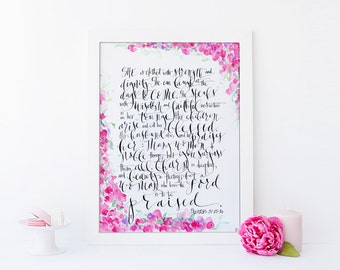 She is clothed with strength and
dignity. She can laugh at the
days to come. She speaks
with wisdom and faithful instruction
is her tongue. Her children
arise and call her blessed
her husband also, and he praises
her: Many women do
noble things, but you surpass
them all. Charm is deceptive
and beauty is fleeting but a
woman who fears the Lord
is to be
praised.
Proverbs 31:25-30